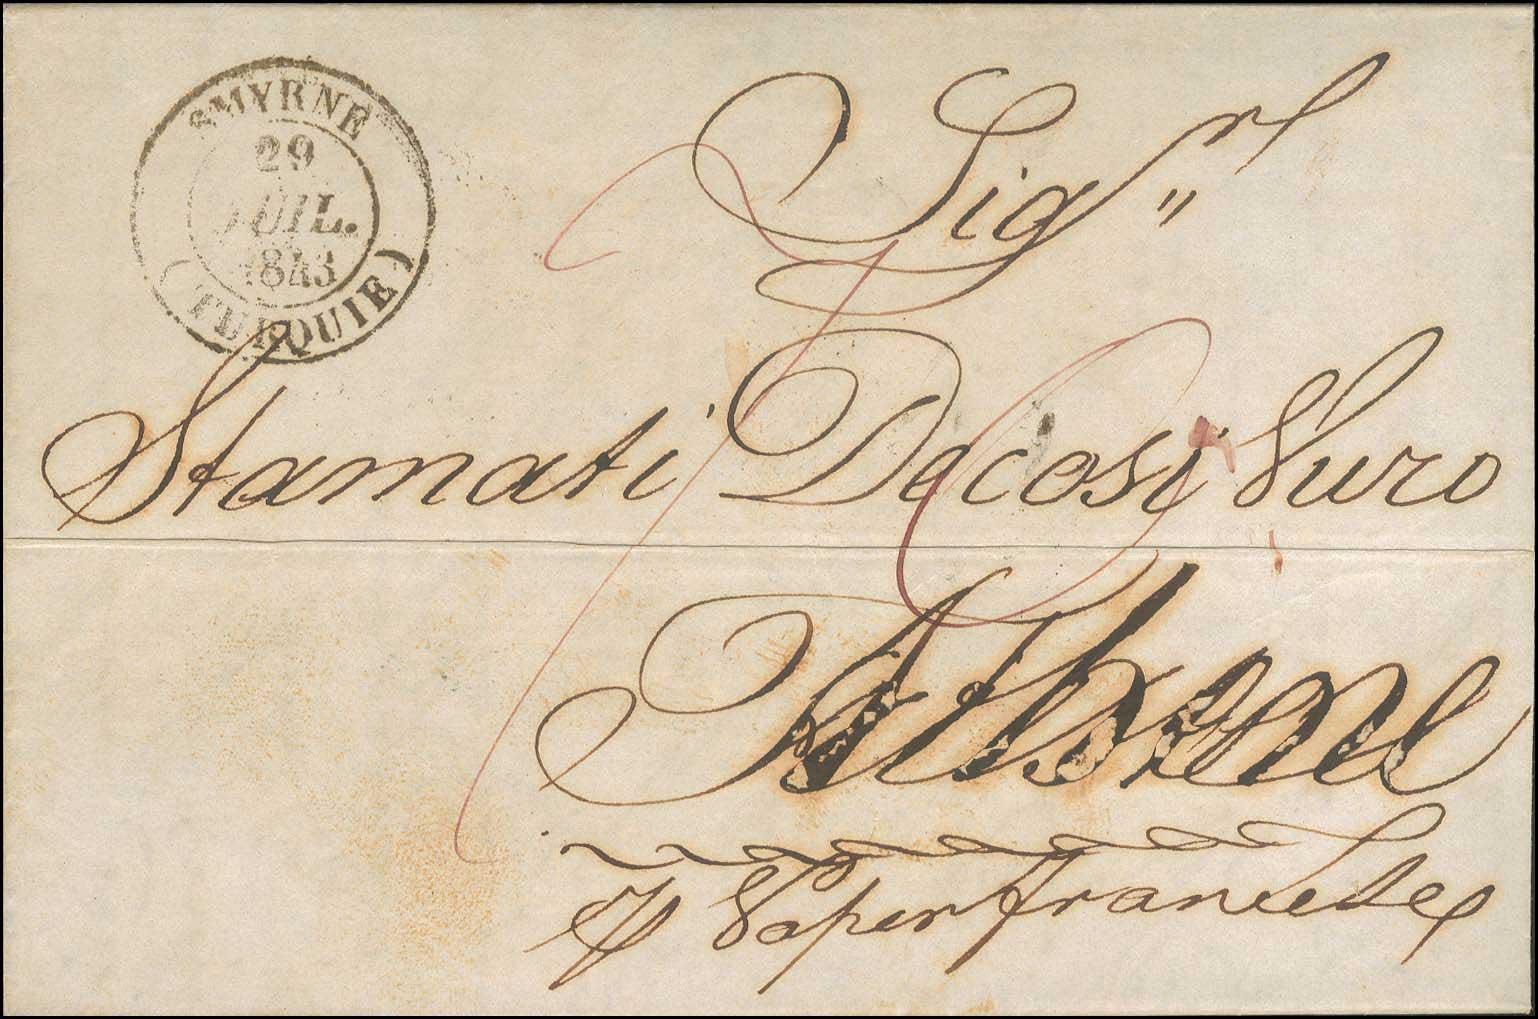 SMYRNE
29
JUIL.
1843
(TURQUIE)
Sig.re
Stamati Decosi Vuro
Athene
p Vapor francese